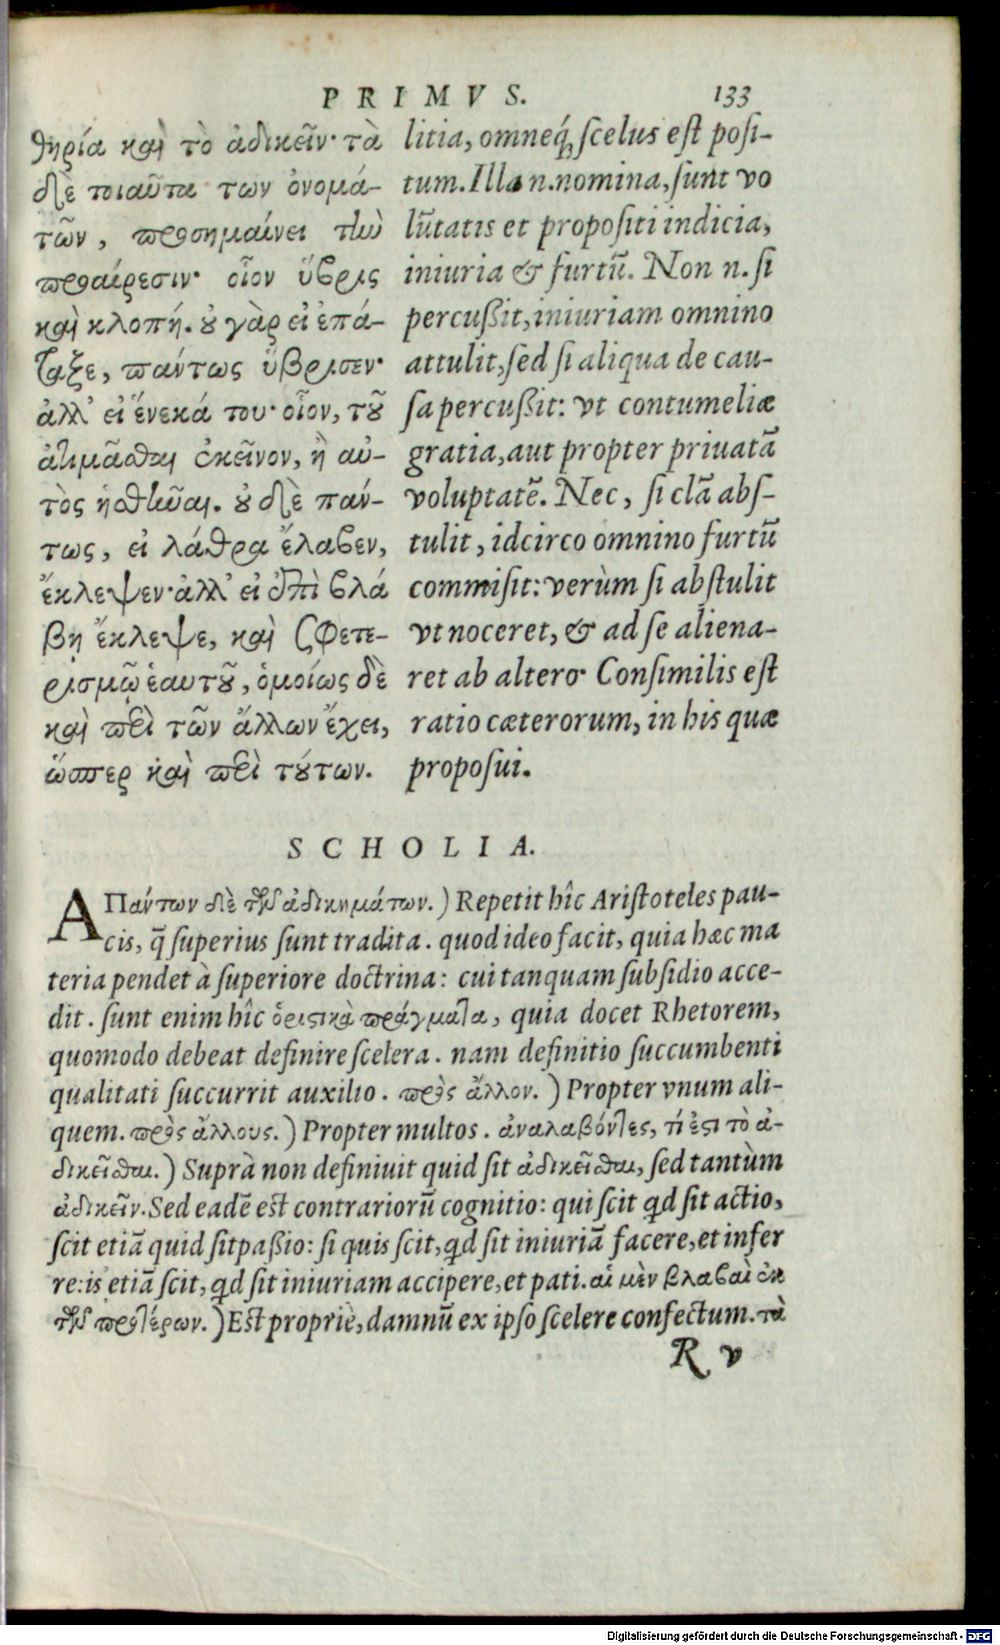 PRIMVS. 133
θηρία καὶ τὸ ἀδικεῖν· τὰ
δὲ τοιαῦτα των ὀνομά-
τῶν, προσημαίνει τὴν
προαίρεσιν· οἷον ὕβρις
καὶ κλοπή. ȣ γὰρ εἰ ἐπά-
ταξε, πάντως ὕβρισεν·
ἀλλ' εἰ ἕνεκά του· οἷον, τȣ͂
ἀτιμᾶσθαι ἐκεῖνον, ἢ αὐ-
τὸς ἡσθῆναι. ȣ δὲ πάν-
τως, εἰ λάθρα ἔλαβεν,
ἔκλεψεν· ἀλλ' εἰ ἐπὶ βλά
βη ἔκλεψε, καὶ σφετε-
ρισμῷ ἑαυτȣ͂, ὁμοίως δὲ
καὶ περὶ τῶν ἄλλων ἔχει,
ὥσπερ καὶ περὶ τȣ́των.
litia, omneq́; scelus est posi-
tum. Illa n. nomina, sunt vo
lũtatis et propositi indicia,
iniuria & furtũ. Non n. si
percußit, iniuriam omnino
attulit, sed si aliqua de cau-
sa percußit: vt contumeliæ
gratia, aut propter priuatã
voluptatẽ. Nec, si clã abs-
tulit, idcirco omnino furtũ
commisit: verùm si abstulit
vt noceret, & ad se aliena-
ret ab altero· Consimilis est
ratio cæterorum, in his quæ
proposui.
SCHOLIA.
AΠάντων δὲ τῶν ἀδικημάτων.) Repetit hîc Aristoteles pau-
cis, q̃ superius sunt tradita. quod ideo facit, quia hæc ma
teria pendet à superiore doctrina: cui tanquam subsidio acce-
dit. sunt enim hîc ὁριστικὰ πράγματα, quia docet Rhetorem,
quomodo debeat definire scelera. nam definitio succumbenti
qualitati succurrit auxilio. πρὸς ἄλλον.) Propter vnum ali-
quem. πρὸς ἄλλους.) Propter multos. ἀναλαβόντες, τί ἐστι τὸ ἀ-
δικεῖσθαι.) Suprà non definiuit quid sit ἀδικεῖσθαι, sed tantùm
ἀδικεῖν. Sed eadẽ est contrariorũ cognitio: qui scit qd sit actio,
scit etiã quid sit paßio: si quis scit, qd sit iniuriã facere, et infer
re: is etiã scit, qd sit iniuriam accipere, et pati. αἱ μὲν βλαβαὶ ἐκ
τῶν προτέρων.) Est propriè, damnũ ex ipso scelere confectum. τὰ
R v
Digitalisierung gefördert durch die Deutsche Forschungsgemeinschaft - DFG